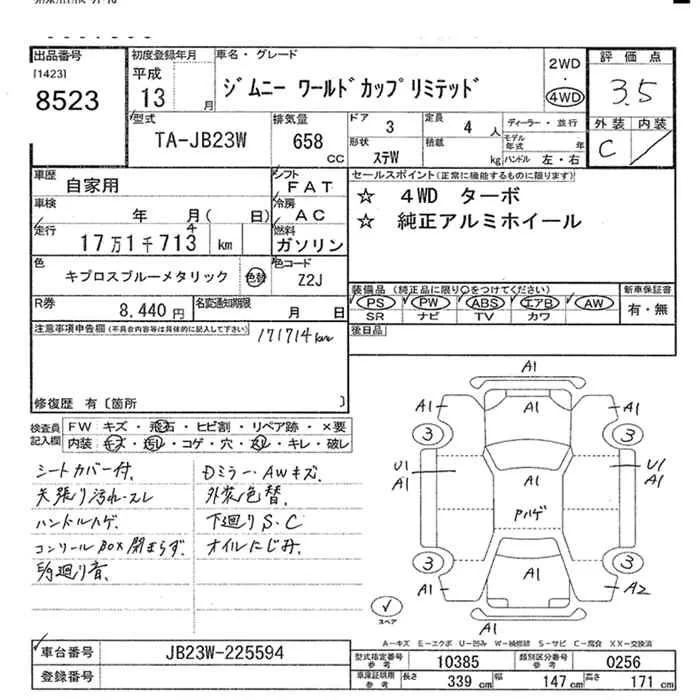 出品番号
[1423]
8523
初度登録年月
平成
13 月
車名・グレード
ジムニー ワールドカップリミテッド
2WD
・
4WD
評価点
3.5
外装 内装
C
型式
TA-JB23W
排気量
658
CC
ドア
3
定員
4 人
形状
ステW
積載
kg
ディーラー・並行
モデル年式 年
ハンドル 左・右
車歴
自家用
シフト
FAT
車検
年 月( 日)
冷房
AC
走行
17万1千713 km
4
燃料
ガソリン
色
キプロスブルーメタリック
色替
色コード
Z2J
R券
8,440 円
名変通知期限
月 日
セールスポイント(正常に機能するものに限ります)
☆ 4WD ターボ
☆ 純正アルミホイール
装備品 (純正品に限り○をつけてください)
PS PW ABS エアB AW
SR ナビ TV カワ
新車保証書
有・無
後日品
注意事項申告欄(不具合内容等は具体的に記入して下さい)
171714km
修復歴 有〔箇所 〕
検査員記入欄
FW キズ・飛石・ヒビ割・リペア跡・×要
内装 キズ・汚れ・コゲ・穴・スレ・キレ・破レ
シートカバー付.
天張り汚れ・スレ
ハンドルハゲ.
コンソールBOX閉まらず.
廻り音.
Dミラー・AWキズ.
外装色替.
下廻りS・C
オイルにじみ.
A1
A1 A1 A1
3 3
U1 A1
A1
U1 A1
Aハゲ
3 3
A1 A1 A2
A1
スペア
A-キズ E-エクボ U-凹み W-補修跡 S-サビ C-腐食 XX-交換済
車台番号
JB23W-225594
登録番号
型式指定番号 参考
10385
類別区分番号 参考
0256
車庫証明用 参考
長さ 339 cm 幅 147 cm 高さ 171 cm